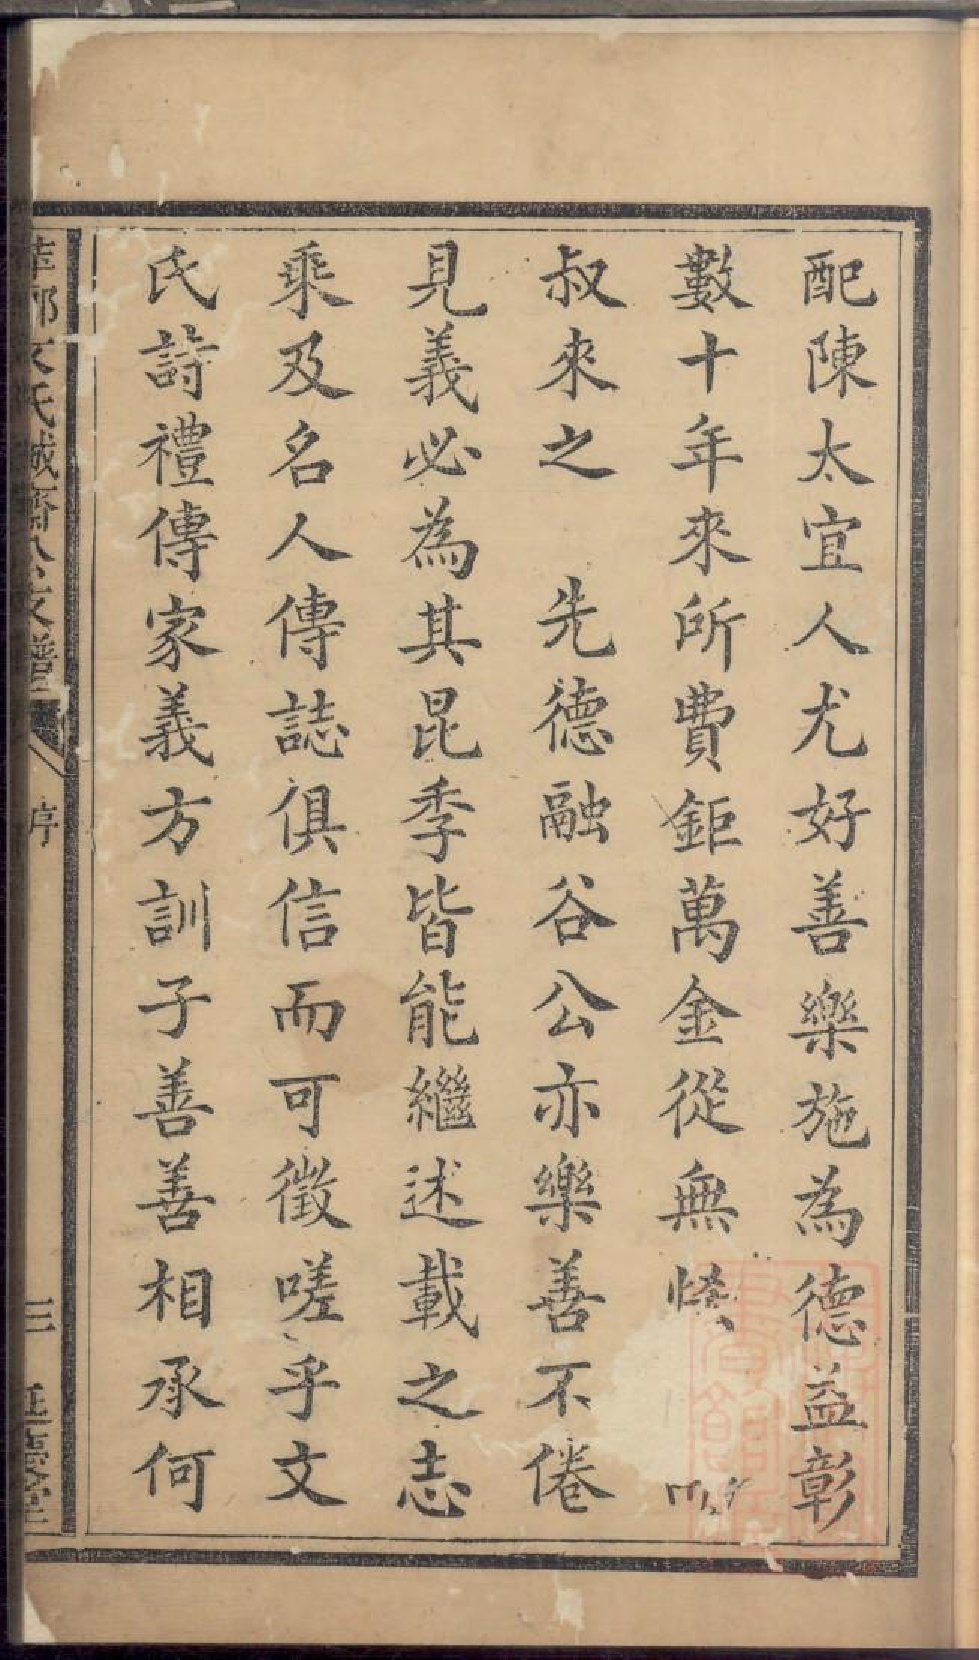 配陳太宜人尤好善樂施為德益彰
數十年來所費鉅萬金從無
叔來之　先德融谷公亦樂善不倦
見義必為其昆季皆能繼述載之志
乘及名人傳誌俱信而可徵嗟乎文
氏詩禮傳家義方訓子善善相承何
文氏誠齋公支譜
序
三